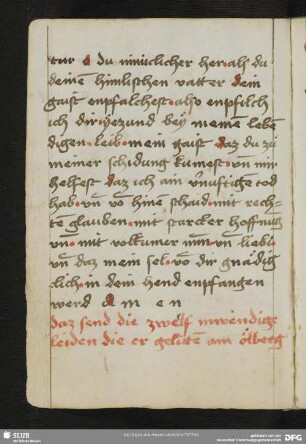 tur O du minniclicher her als du
deinem himlischen vatter dein
gaist enpfalchest also enpfilch
ich dir yezund bey meinem lebe
digen leib mein gaist daz du zů
meiner schidung kumest vn mir
helfest daz ich ain vnüftigen tod
hab vn vō hine schaid mit rech
tē glauben mit starcker hoffnug
vn mit volkumer mīn vn liebi
vn daz mein sel vō dir gnädig
clich in dein hend enpfangen
werd A m e n
daz send die zwelf inwendige
leiden die er gelitē am ölberg
SLUB
DFG